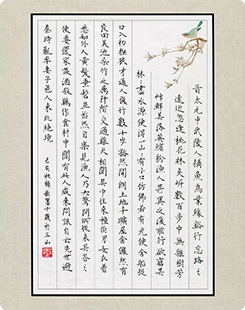 晉太元中武陵人捕魚為業緣溪行忘路之
遠近忽逢桃花林夾岸數百步中無雜樹芳
草鮮美落英繽紛漁人甚異之復前行欲窮其
林〻盡水源便得一山〻有小口彷彿若有光便舍船從
口入初極狹才通人復行數十步豁然開朗土地平曠屋舍儼然有
良田美池桑竹之屬阡陌交通雞犬相聞其中往來種作男女衣著
悉如外人黃髮垂髫並怡然自樂見漁人乃大驚問所從來具答之
便要還家設酒殺雞作食村中聞有此人咸來問訊自云先世避
秦時亂率妻子邑人來此絕境